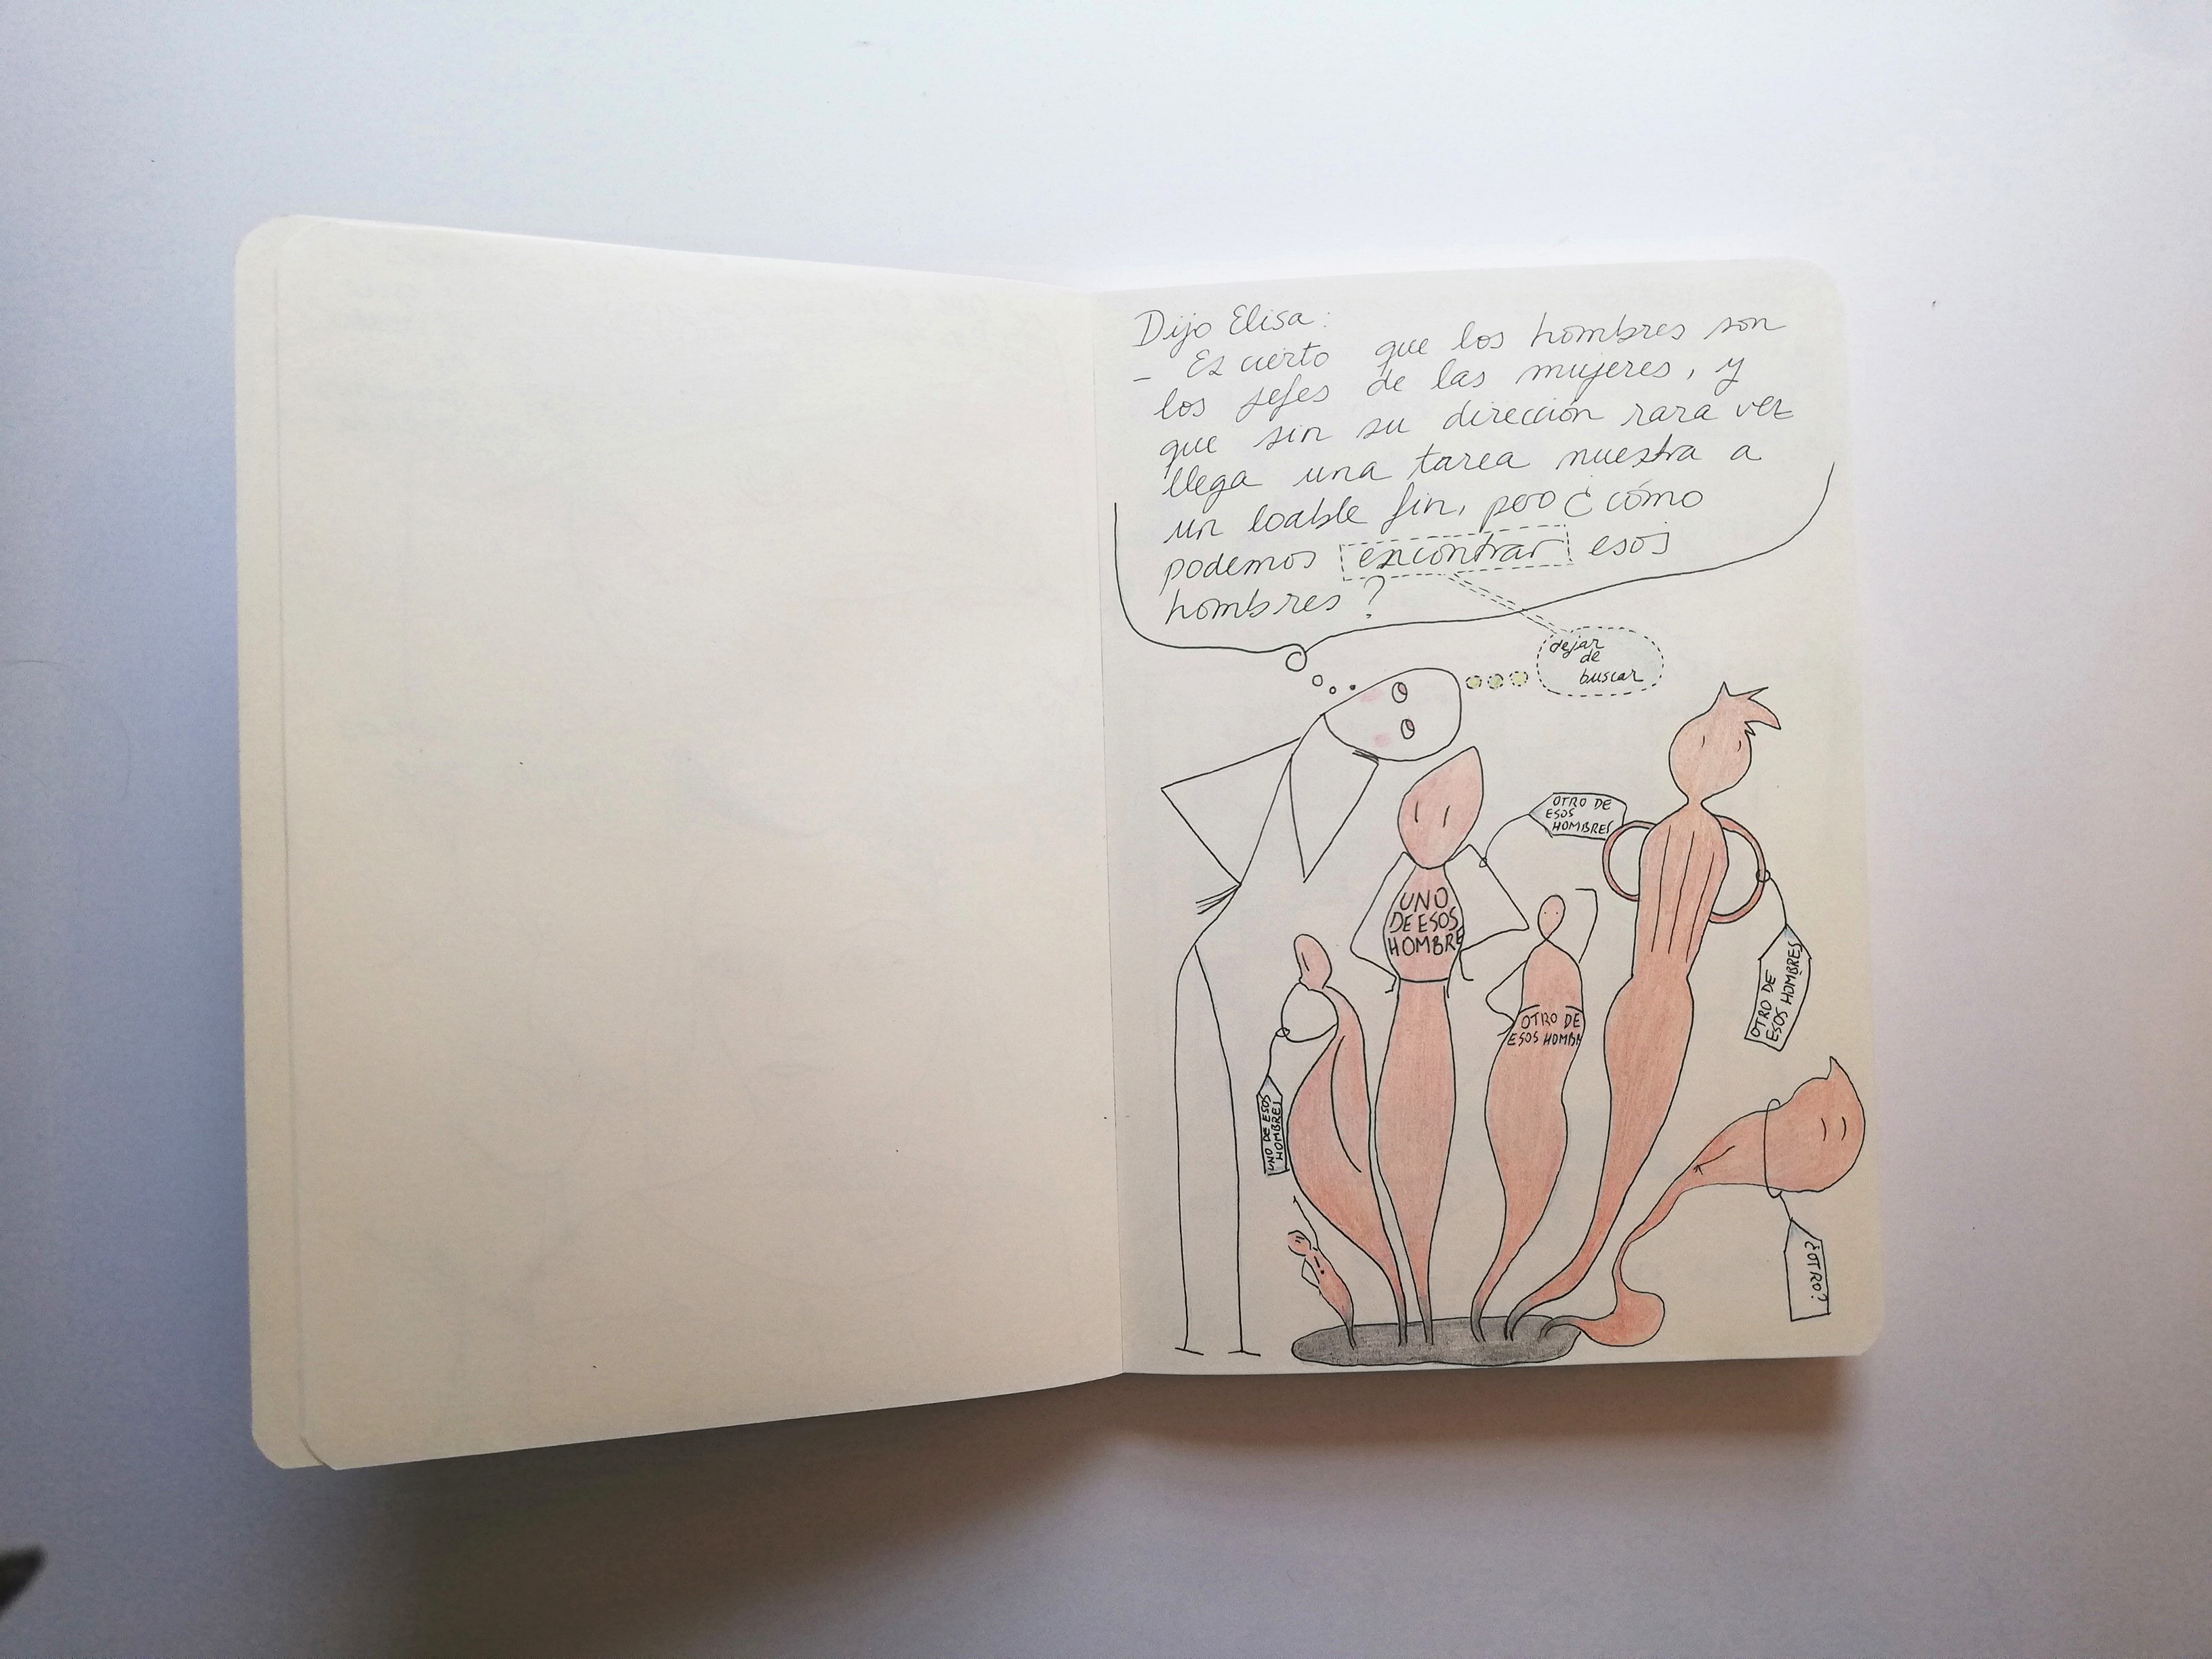 Dijo Elisa:
– Es cierto que los hombres son
los jefes de las mujeres, y
que sin su dirección rara vez
llega una tarea nuestra a
un loable fin, pero ¿cómo
podemos encontrar esos
hombres?
dejar
de
buscar
OTRO DE
ESOS
HOMBRES
UNO
DE ESOS
HOMBRE
OTRO DE
ESOS HOMBR
OTRO DE
ESOS HOMBRES
UNO DE ESOS
HOMBRES
¿OTRO?